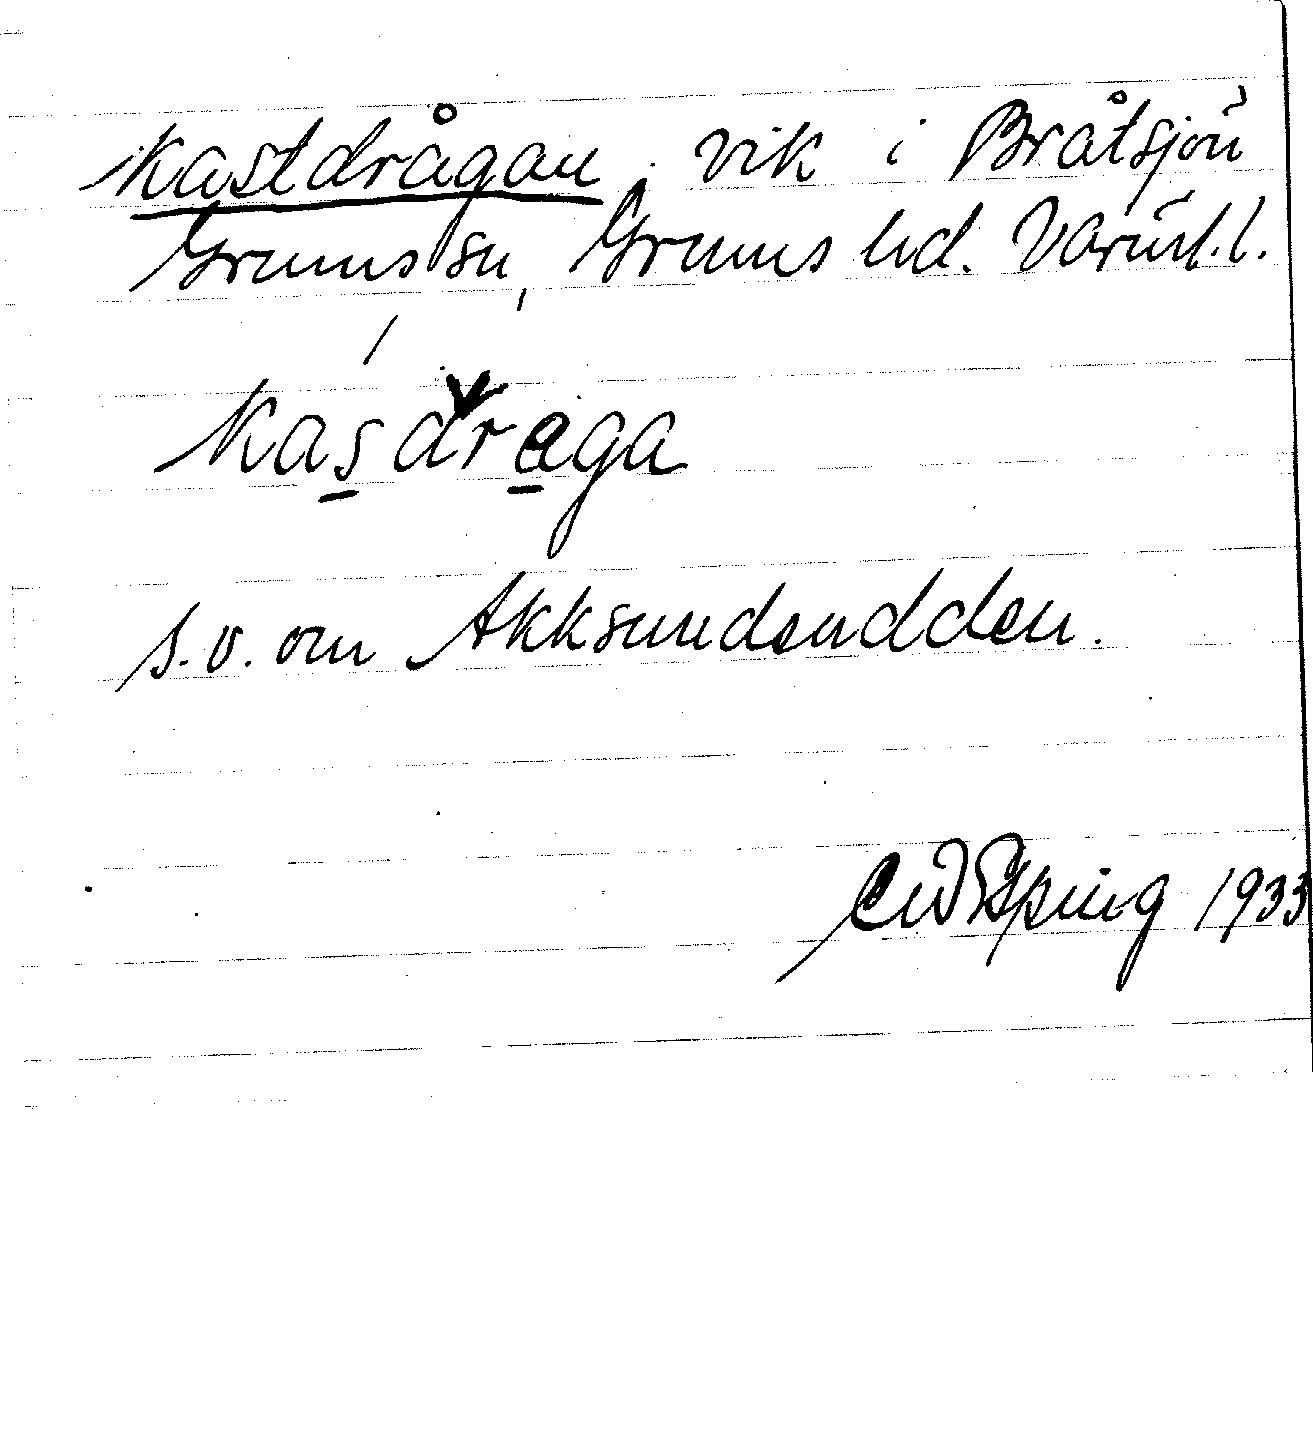 Kastdrågan. vik i Bråtsjön
Grums sn, Grums hd. Värml. l.
Kasdraga
s.v. om Akksundsudden.
1933